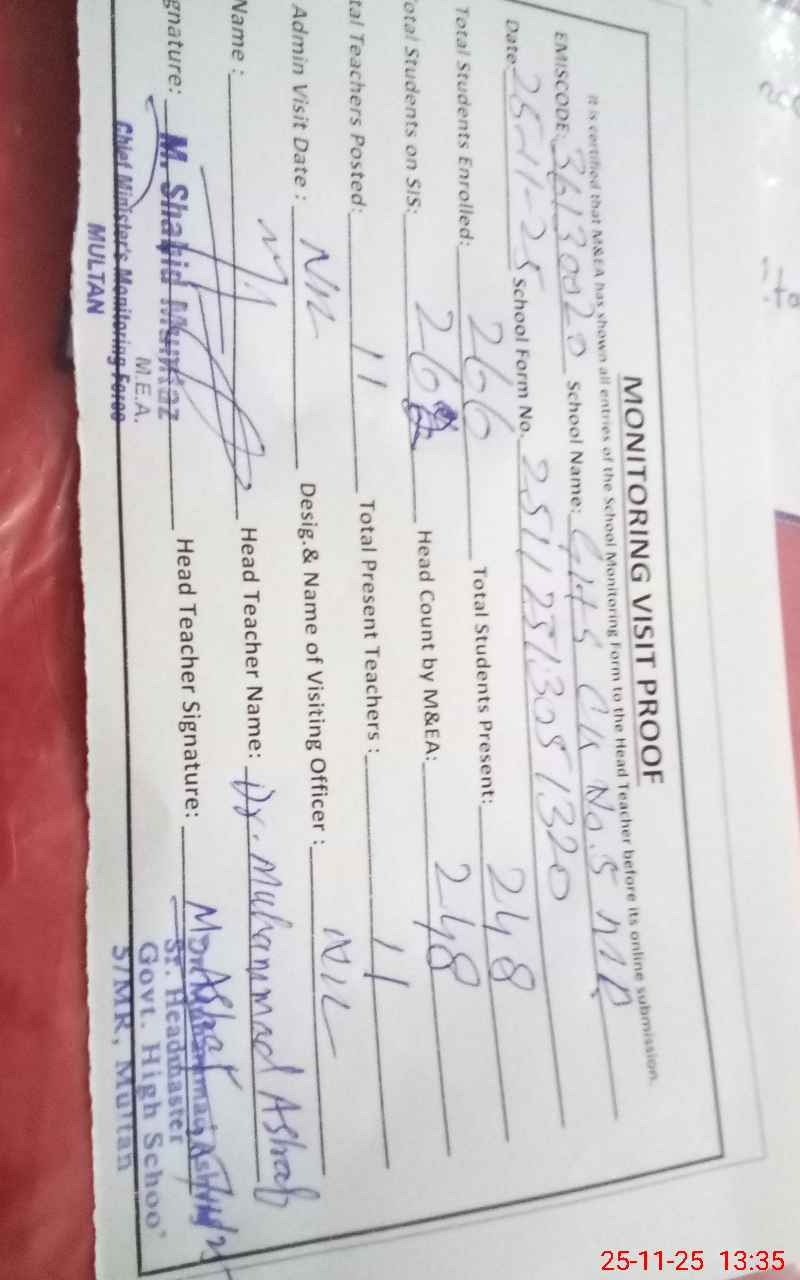 MONITORING VISIT PROOF
It is certified that M&EA has shown all entries of the School Monitoring Form to the Head Teacher before its online submission.
EMISCODE: 36130020 School Name: GHS Ch No. 5 MR
Date 25-11-25 School Form No. 25112513051320
Total Students Enrolled: 266 Total Students Present: 248
otal Students on SIS: 26 Head Count by M&EA: 248
tal Teachers Posted: 11 Total Present Teachers : 11
Admin Visit Date : NIL Desig.& Name of Visiting Officer : NIL
Name : Head Teacher Name: Dr. Muhammad Ashraf
gnature: Head Teacher Signature:
M. Shahid Mumtaz
M.E.A.
Chief Minister's Monitoring Force
MULTAN
Sr. Headmaster
Govt. High Schoo
5/MR, Multan
25-11-25 13:35